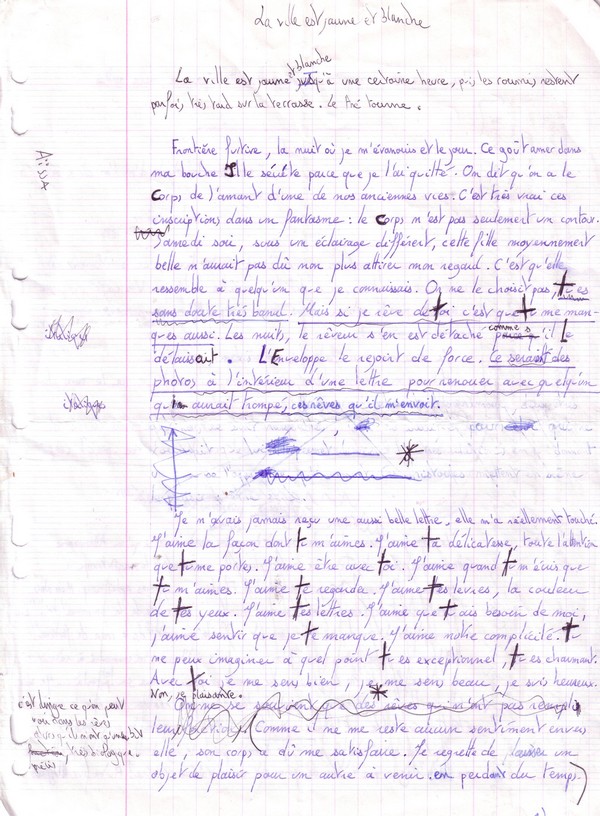 La ville est jaune et blanche
et blanche
La ville est jaune jusqu'à une certaine heure, puis les roumis restent
parfois très tard sur la terrasse. Le thé tourne.
Frontière furtive, la nuit où je m'évanouis et le jour. Ce goût amer dans
ma bouche Elle seulte parce que je l'ai quitté. On dit qu'on a le
Corps de l'amant d'une de nos anciennes vies. C'est très vrai ces
inscriptions dans un fantasme : le Corps n'est pas seulement un contour.
Samedi soir, sous un éclairage différent, cette fille moyennement
belle n'aurait pas dû non plus attirer mon regard. C'est qu'elle
ressemble à quelqu'un que je connaissais. On ne le choisit pas, tu es
sans doute très banal. Mais si je rêve de toi c'est que tu me man-
ques aussi. Les nuits, le rêveur s'en est détaché comme s'il
délaissait. L'Enveloppe le rejoint de force. Ce seraient des
photos à l'intérieur d'une lettre pour renouer avec quelqu'un
qui aurait trompé, ces rêves qu'il m'envoit.
Je n'avais jamais reçu une aussi belle lettre, elle m'a réellement touché.
J'aime la façon dont tu m'aimes. J'aime ta délicatesse, toute l'attention
que tu me portes. J'aime être avec toi. J'aime quand tu m'écris que
tu m'aimes. J'aime te regarder. J'aime tes lèvres, la couleur
de tes yeux. J'aime tes lettres. J'aime que tu ais besoin de moi,
j'aime sentir que je te manque. J'aime notre complicité. Tu
ne peux imaginer à quel point tu es exceptionnel, tu es charmant.
Avec toi je me sens bien, je me sens beau, je suis heureux.
Non, je plaisante.
On ne se souvient que des rêves qui n'ont pas rempli
leur (Comme il ne me reste aucun sentiment envers
elle, son corps a dû me satisfaire. Je regrette de laisser un
objet de plaisir pour un autre à venir en perdant du temps.)
c'est dingue ce qu'on peut